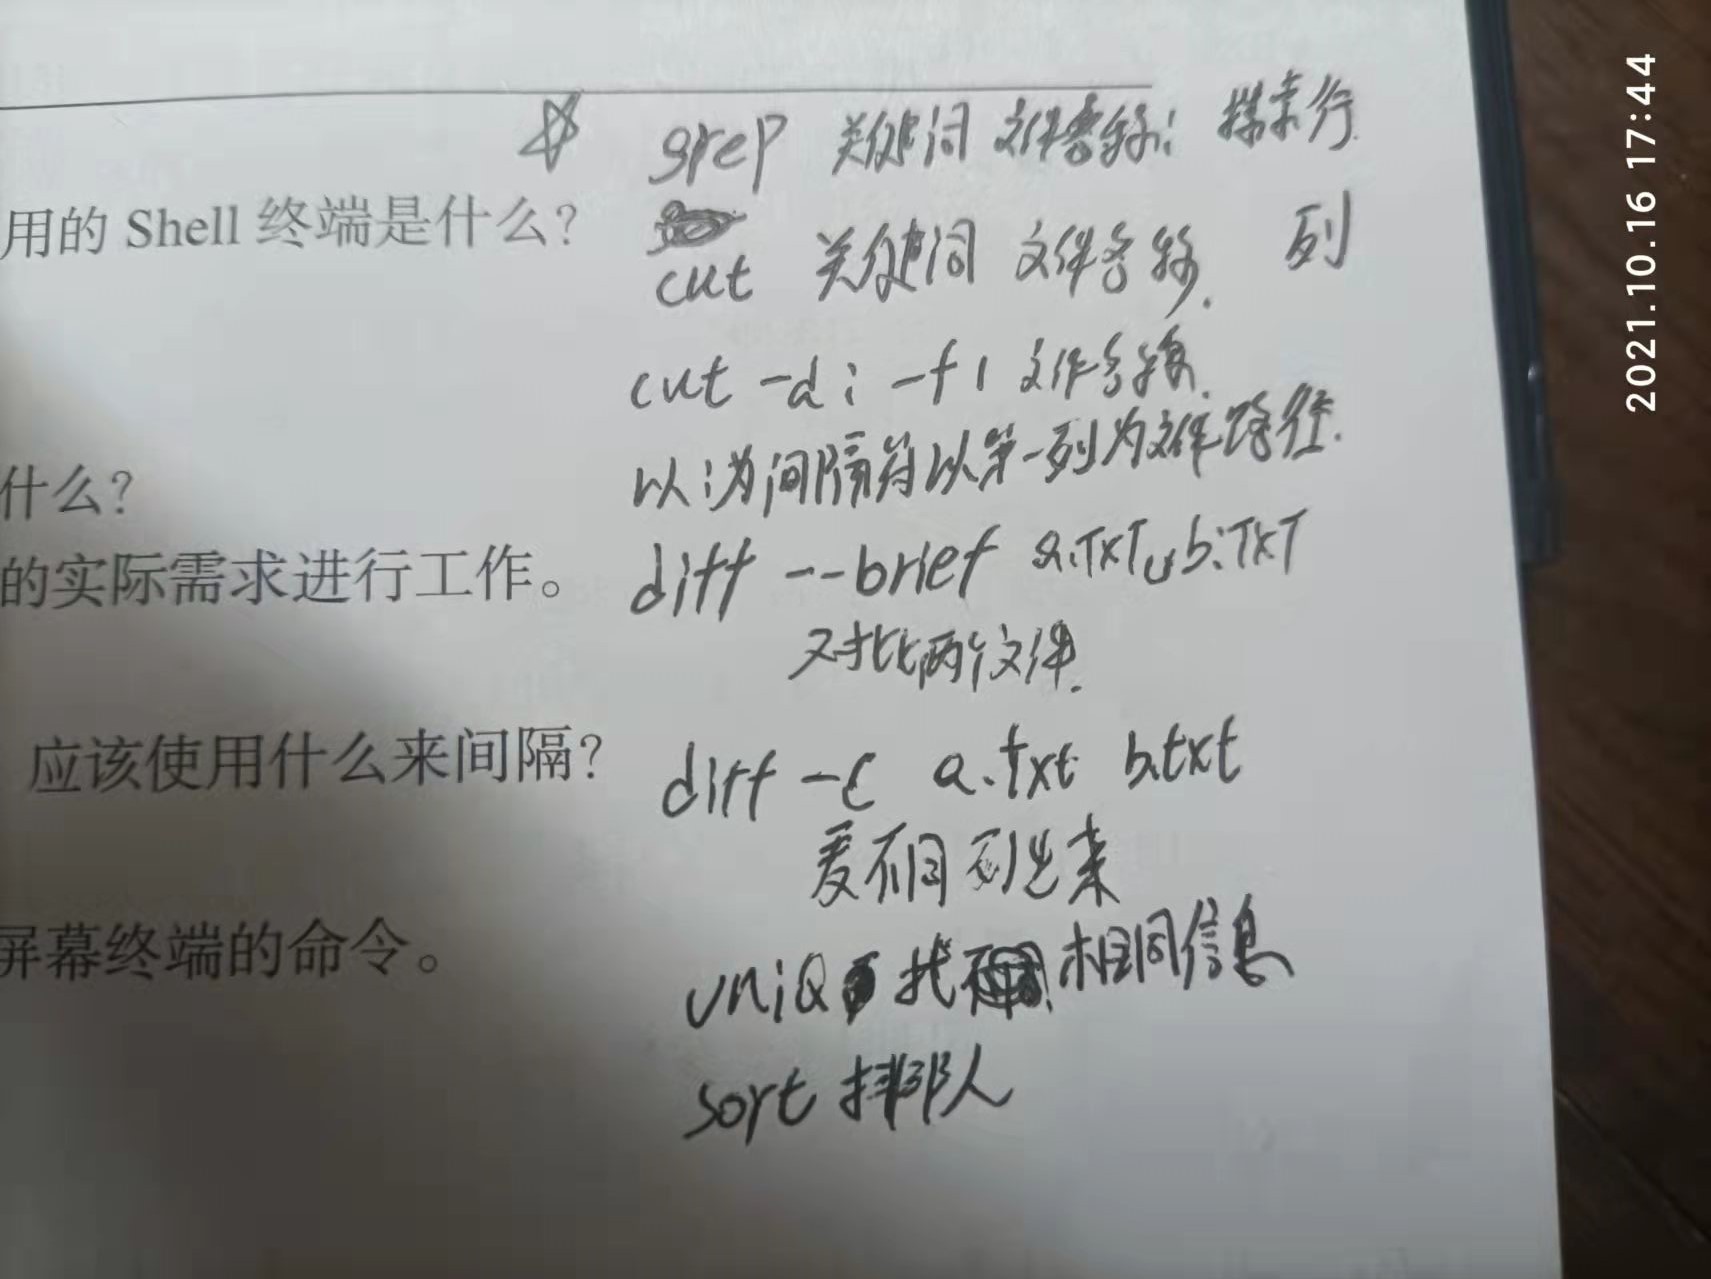 ☆ grep 关键词 文件名称: 搜索行.
用的 Shell 终端是什么?
cut 关键词 文件名称. 列
cut -d: -f1 文件名称.
什么?
以:为间隔符以第一列为文件路径.
的实际需求进行工作。
diff --brief a.TXT b.TXT
对比两个文件.
应该使用什么来间隔?
diff -c a.txt b.txt
不同列出来
屏幕终端的命令。
uniQ 找 相同信息
sort 排
2021.10.16 17:44